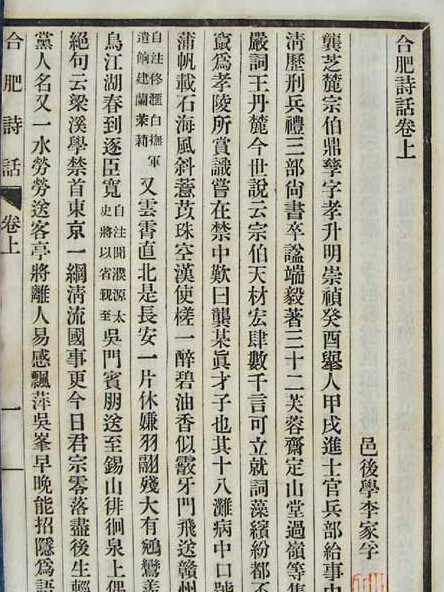 合肥詩話卷上
邑後學李家孚
龔芝麓宗伯鼎孳字孝升明崇禎癸酉舉人甲戌進士官兵部給事中
淸歷刑兵禮三部尙書卒諡端毅著三十二芙蓉齋定山堂過嶺等集
嚴詞王丹麓今世說云宗伯天材宏肆數千言可立就詞藻繽紛都不
竄爲孝陵所賞識嘗在禁中歎曰龔某眞才子也其十八灘病中口號
蒲帆載石海風斜薏苡珠空漢使槎一醉碧油香似霰牙門飛送贛州
自注修滙白撫軍遺餉建蘭茉莉又雲霄直北是長安一片休嫌羽翮殘大有鵷鸞羨
烏江湖春到逐臣寬自注開濮源太史將以省親至吳門賓朋送至錫山徘徊泉上偶
絕句云梁溪學禁首東京一綱淸流國事更今日君宗零落盡後生輕
黨人名又一水勞勞送客亭將離人易感飄萍吳峯早晚能招隱爲語
合肥詩話 卷上 一